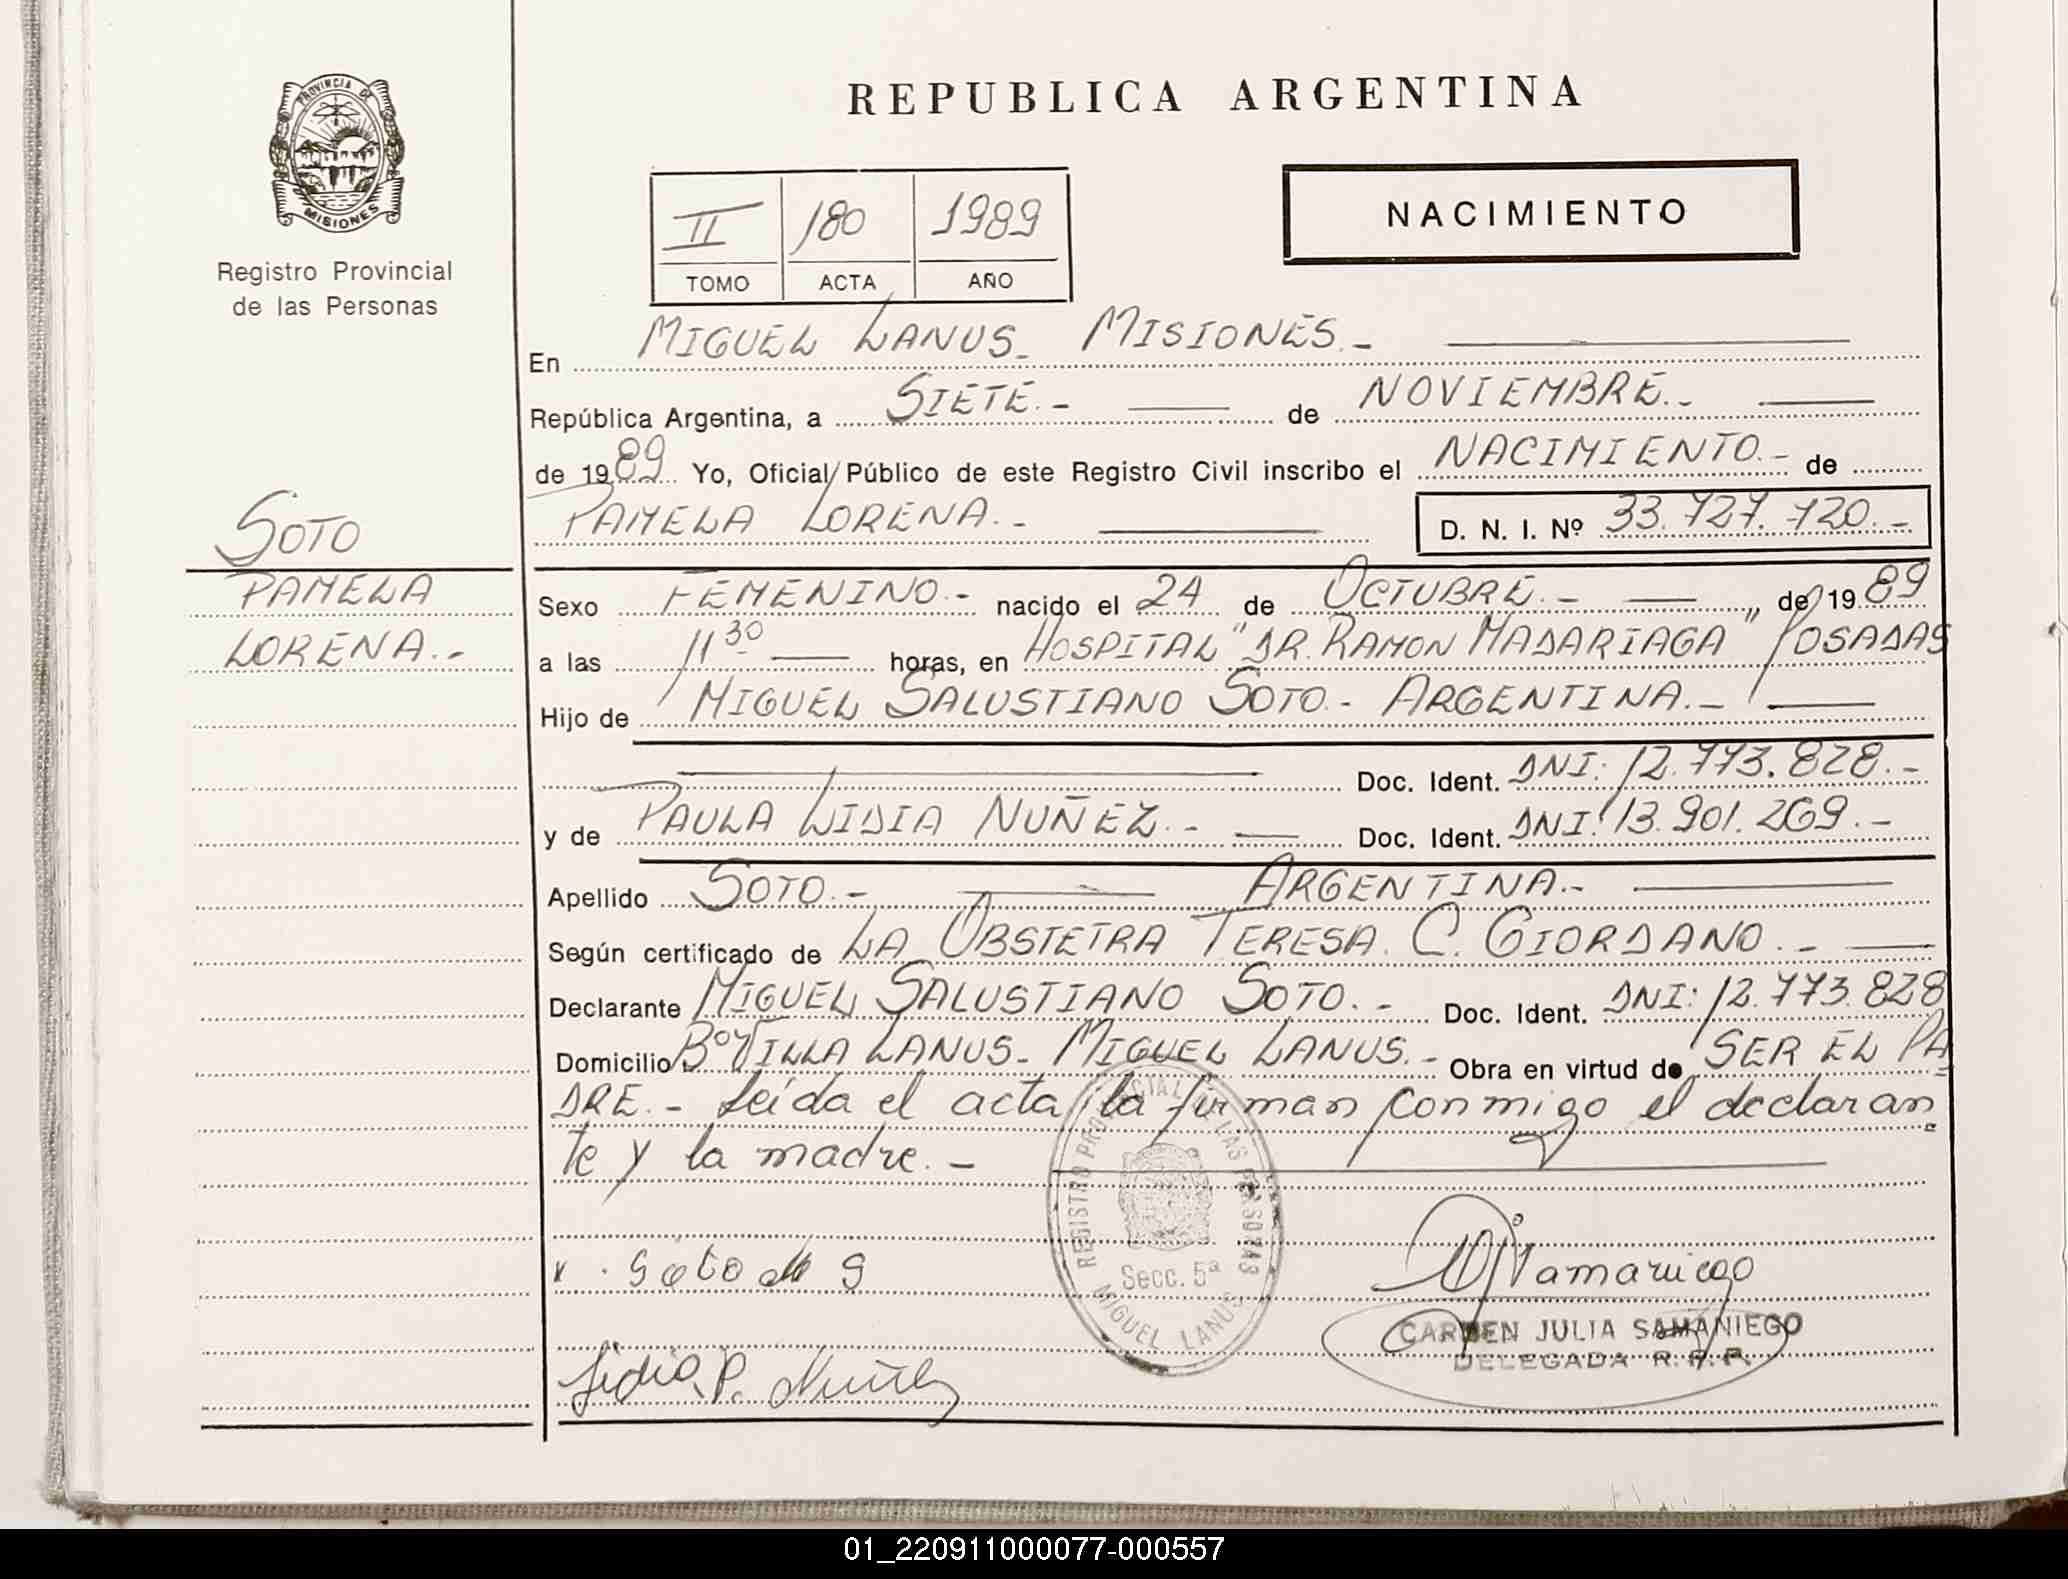 REPUBLICA ARGENTINA
PROVINCIA DE
MISIONES
Registro Provincial
de las Personas
II 180 1989
TOMO ACTA AÑO
NACIMIENTO
En MIGUEL LANUS - MISIONES.-
República Argentina, a SIETE.- de NOVIEMBRE.-
de 1989 Yo, Oficial Público de este Registro Civil inscribo el NACIMIENTO.- de
PAMELA LORENA.- D. N. I. Nº 33.727.720.-
SOTO
PAMELA
LORENA.-
Sexo FEMENINO.- nacido el 24 de OCTUBRE.- de 1989
a las 11 30 horas, en HOSPITAL "DR. RAMON MADARIAGA" POSADAS
Hijo de MIGUEL SALUSTIANO SOTO.- ARGENTINA.-
Doc. Ident. DNI: 12.773.828.-
y de PAULA LIDIA NUÑEZ.- Doc. Ident. DNI: 13.901.269.-
Apellido SOTO.- ARGENTINA.-
Según certificado de LA OBSTETRA TERESA. C. GIORDANO.-
Declarante MIGUEL SALUSTIANO SOTO.- Doc. Ident. DNI: 12.773.828
Domicilio Bº VILLA LANUS - MIGUEL LANUS.- Obra en virtud de SER EL PA
DRE.- Leída el acta, la firman conmigo el declaran
te y la madre.-
REGISTRO PROVINCIAL DE LAS PERSONAS
Secc. 5ª
MIGUEL LANUS
Soto M S
Samaniego
CARMEN JULIA SAMANIEGO
DELEGADA R. P. P.
Lidia P. Nuñez
01_220911000077-000557